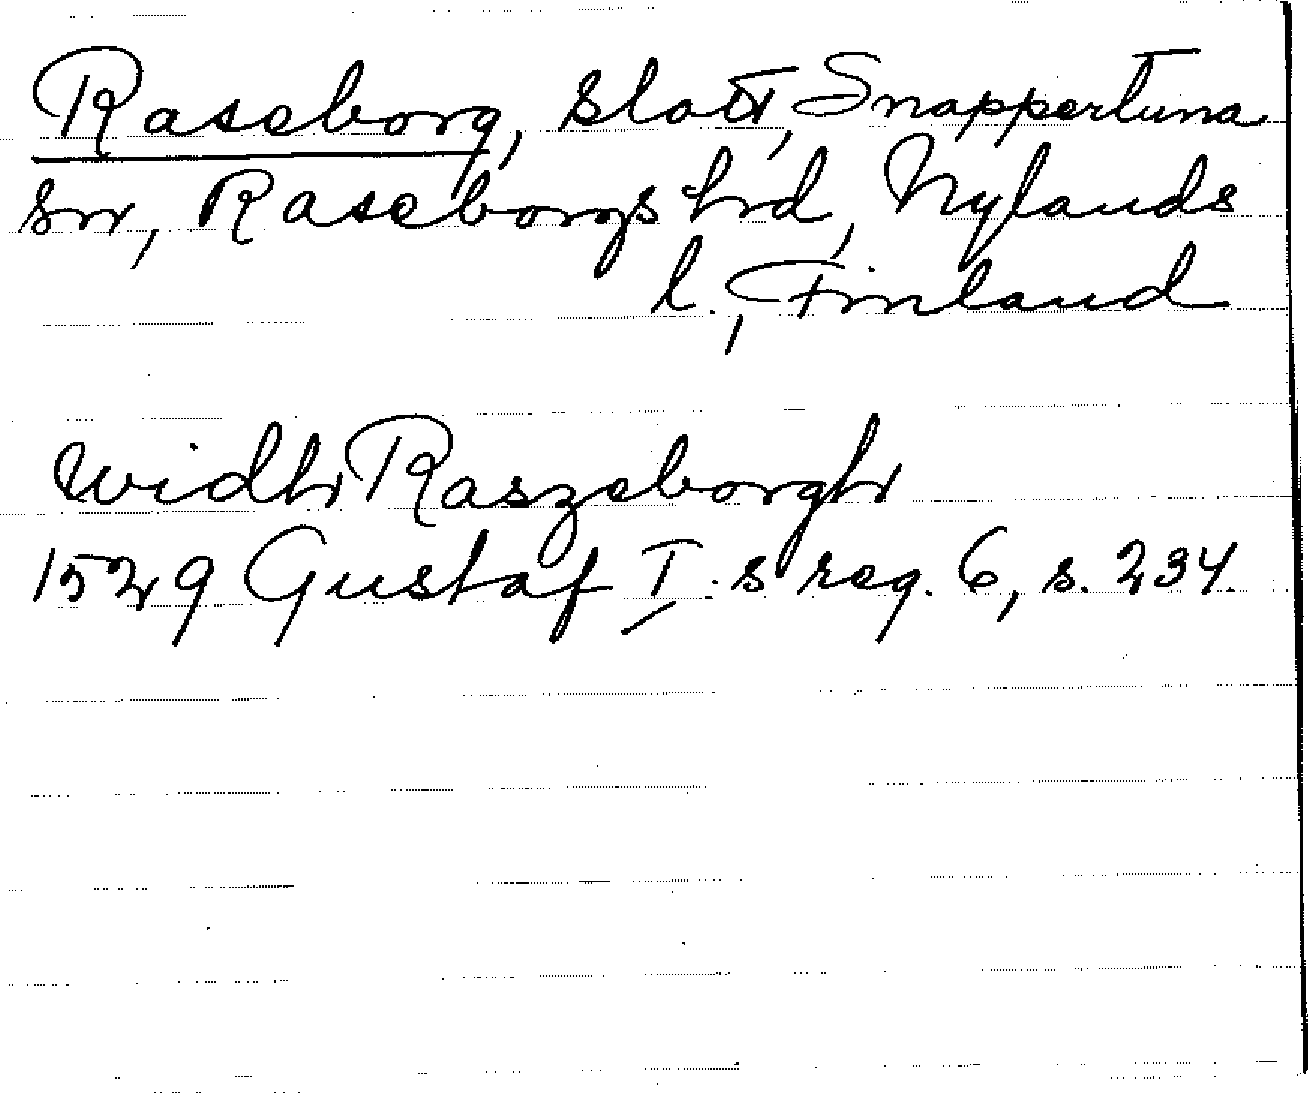 Raseborg, slott, Snappertuna
sn, Raseborgs hrd, Nylands
l., Finland
widh Raszeborgh
1529 Gustaf I:s reg. 6, s. 234.